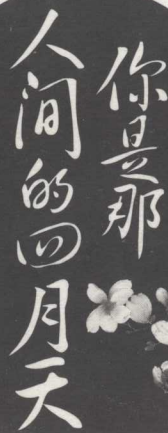 你是那
人间的四月天